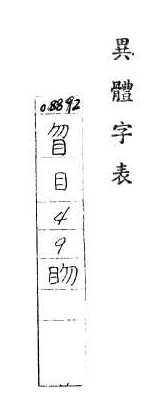 異體字表
08892
目
4
9
䀛